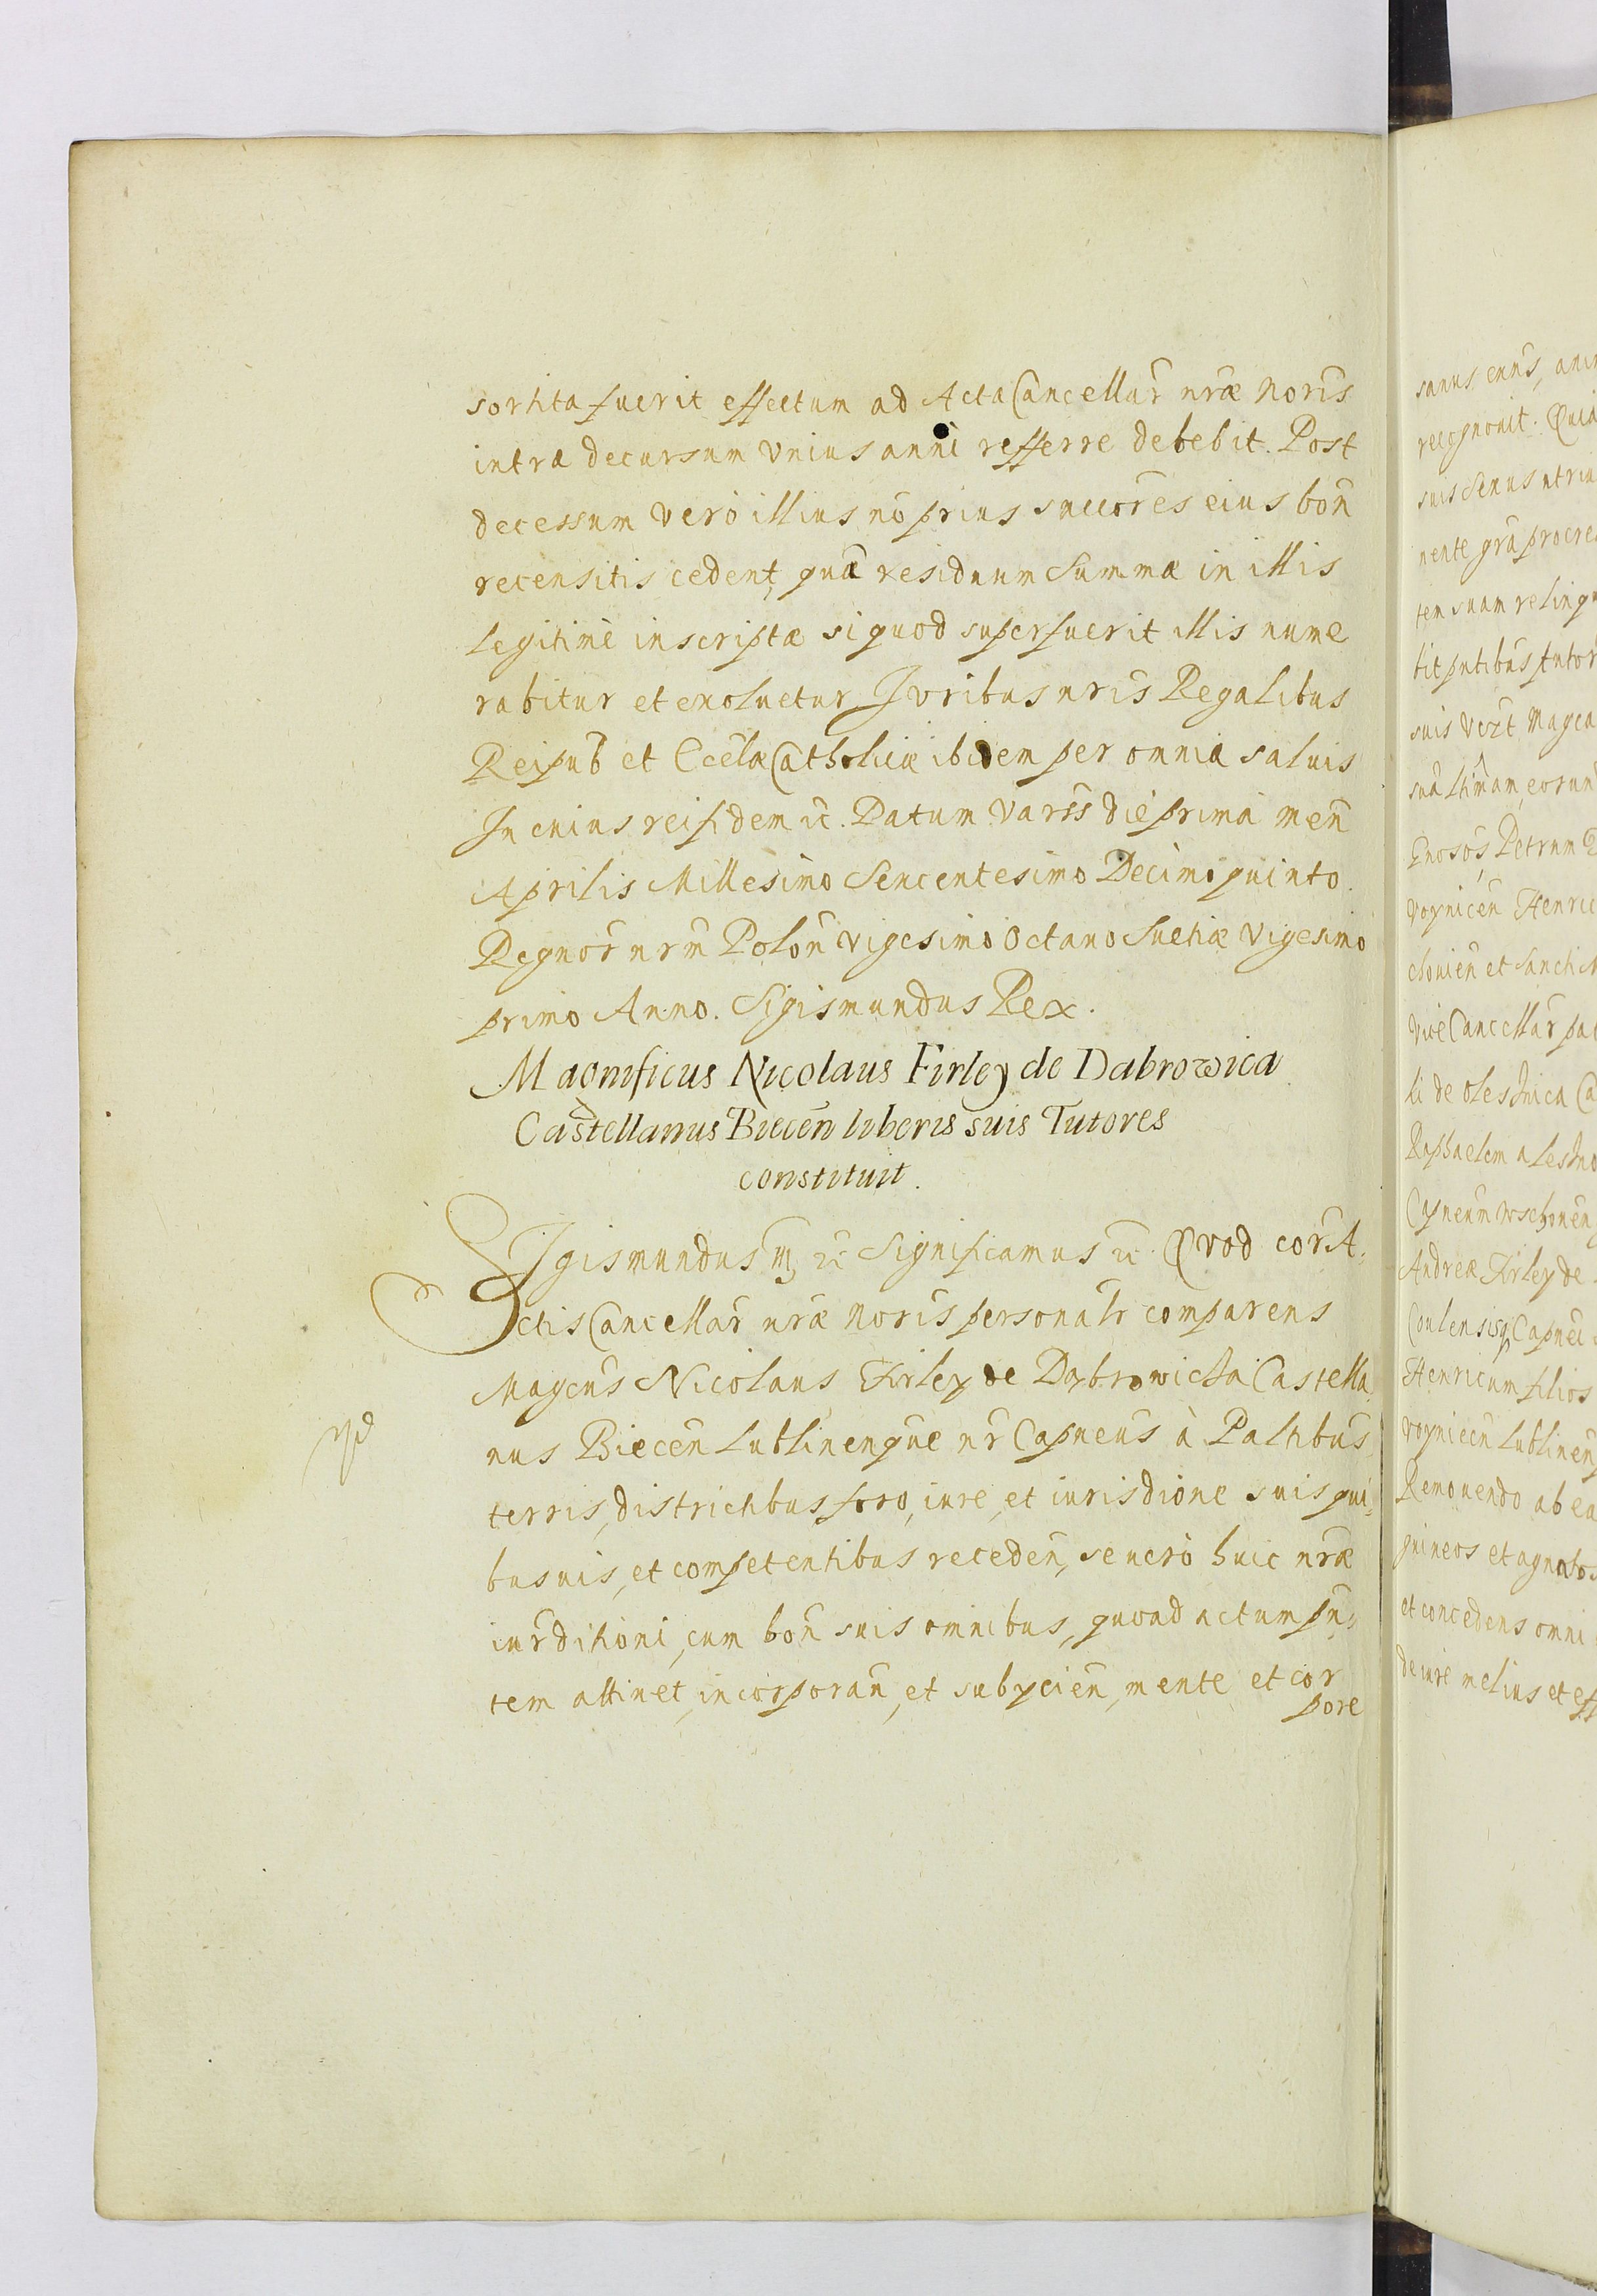 sortita fuerit effectum ad Acta Cancellar̃ nr̃æ Noris̃
intra decursum vnius anni refferre debebit. Post
decessum verò illius nõ prius succor̃es eius boñ
recensitis cedent, quã residuum Summæ in illis
legitimè inscriptæ si quod superfuerit illis nume
rabitur et exoluetur Juribus nris̃ Regalibus
Reipub̃ et Ecclæ̃ Catholicæ ibidem per omnia saluis
In cuius rei fidem ꝛc̃. Datum Varss̃ die prima meñ
Aprilis Millesimo Sexcentesimo Decimo quinto.
Regnor̃ nrm̃ Poloñ vigesimo Octauo Suetiæ Vigesimo
primo Anno. Sigismundus Rex.
Magnificus Nicolaus Firley de Dabrowica
Castellanus Bieceñ liberis suis Tutores
constituit.
SIgismundus III, ꝛc̃ Significamus ꝛc̃. Quod cor̃ A-
ctis Cancellar̃ nr̃æ Noris̃ personalr̃ comparens
Magcus̃ Nicolaus Firley de Dąbrowicza Castella
nus Bieceñ Lublineñque nr̃ Capneus̃ à Palhibus̃
terris, districtibus foro, iure, et iurisdiõne suis qui-
busuis, et competentibus recedeñ, se uerò huic nr̃æ
iur̃ditioni, cum boñ suis omnibus, quoad actum pñ-
tem attinet, incorporañ, et subycieñ, mente et cor
pore
sanus exñs, anim
recognouit. Quia
suis Sexus utriu
nente grã procrea
tem suam relinqu
bit pñtibus̃ tutor
suis Vezt Magca
suã lhim̃am, eorun
Gnosos̃ Petrum D
Voyniceñ Henric
chouieñ et Sancti M
Vice Cancellar̃ pa
li de Oleśnica Ca
Raphaelem a Leszno
Capneum̃ Wschoueñ
Andreæ Firley de
Coulensisq Capnei
Henricum filios
Voynieceñ Lublineñ
Remouendo ab ea
guineos et agnatos
et concedens omni
de iure melius et eff